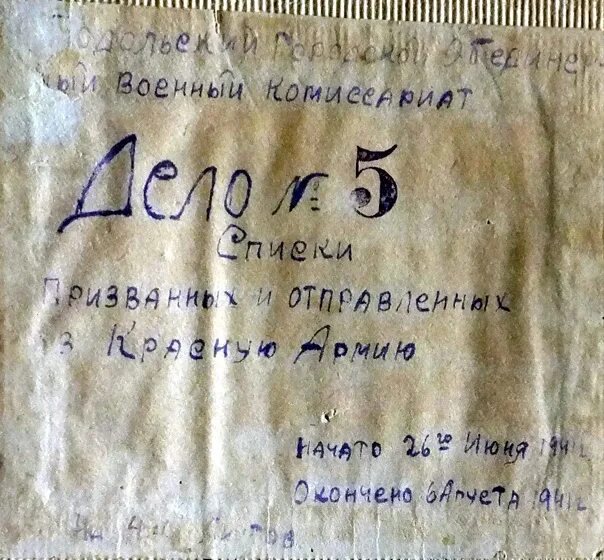 Подольский Городской Объединен-
ный Военный Комиссариат
Дело № 5
Списки
Призванных и отправленных
в Красную Армию
начато 26го Июня 1941г.
Окончено 6 Августа 1941г.
На листов